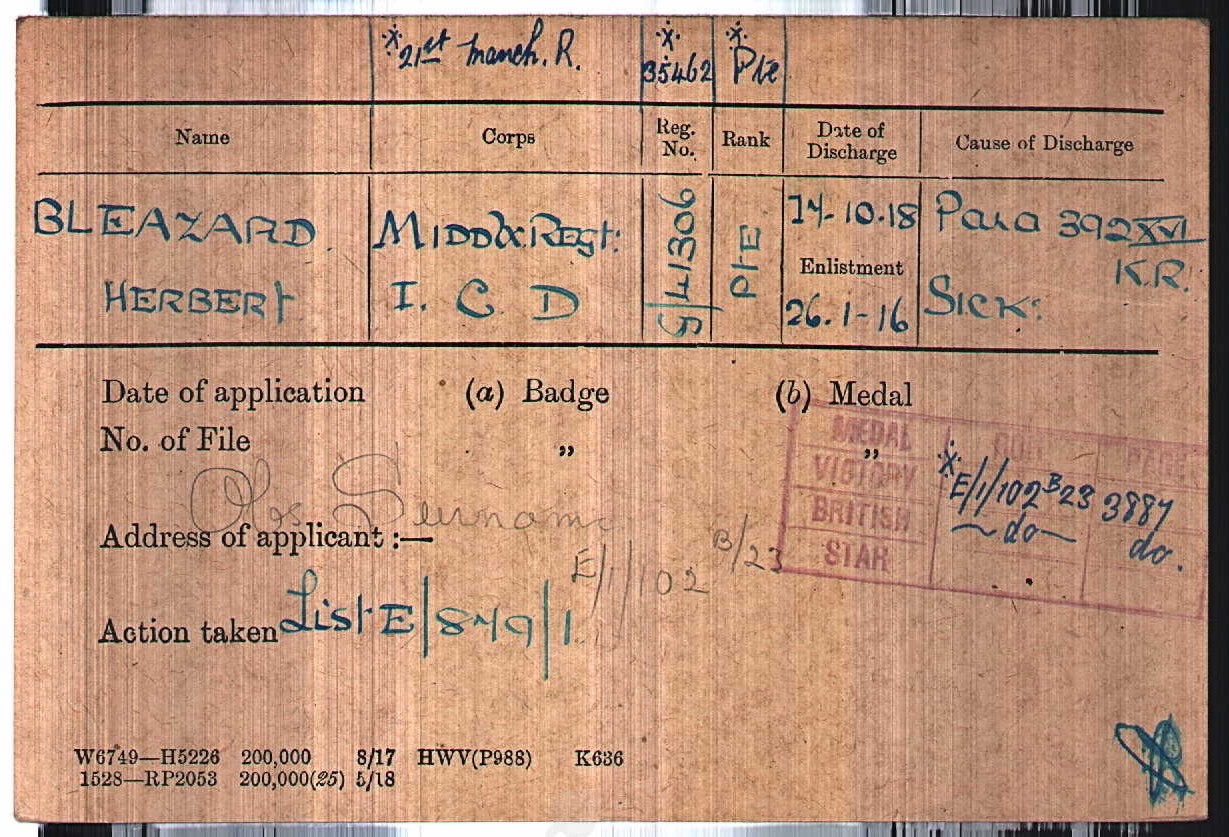 *21st Manch. R. *35462 *Pte
Name Corps Reg. No. Rank Date of Discharge Cause of Discharge
BLEAZARD. MIDDX REGT: G/41306 PTE 14-10-18 Para 392 XVI
Enlistment K.R.
HERBERT. I. C. D 26.1-16 SICK:
Date of application (a) Badge (b) Medal
No. of File „ „
MEDAL PAGE
VICTORY *E/1/102 B23 3887
BRITISH —do— do.
STAR
Surname
Address of applicant :—
E/1/102 B/23
Action taken List E/849/1
W6749—H5226 200,000 8/17 HWV(P988) K636
1528—RP2053 200,000(25) 5/18